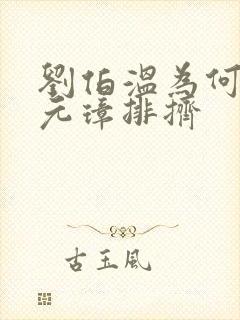 劉伯溫為何
元璋排擠
古玉風